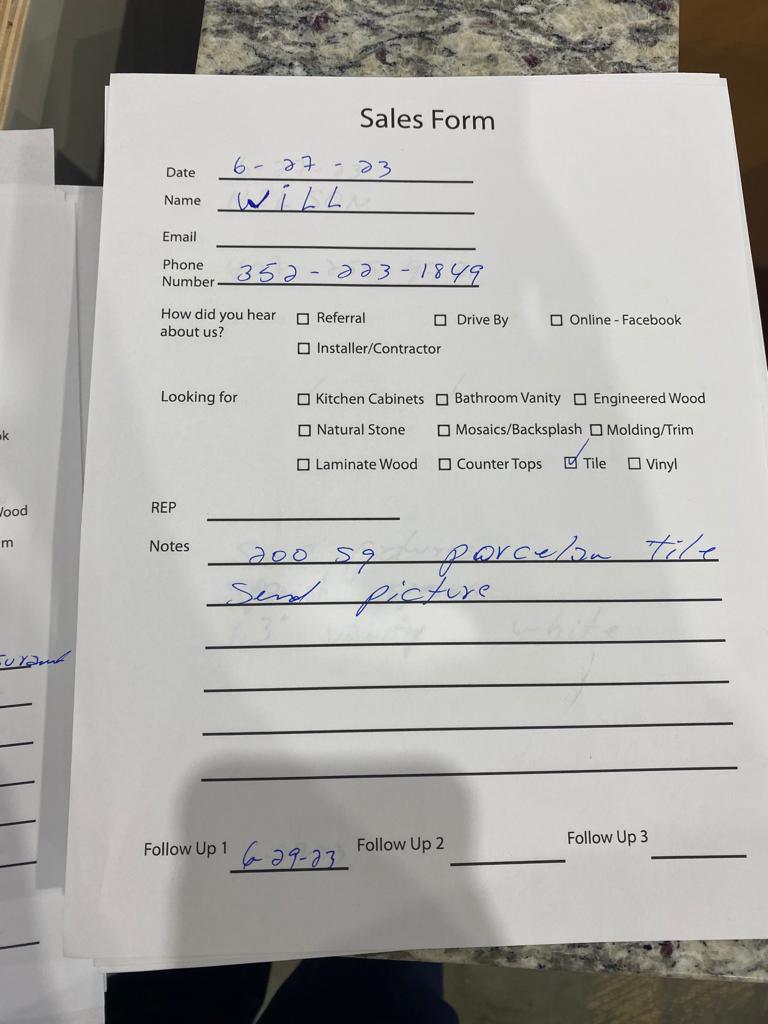 Sales Form
Date 6-27-23
Name WiLL
Email
Phone Number 352-223-1849
How did you hear about us?
Referral Drive By Online - Facebook
Installer/Contractor
Looking for
Kitchen Cabinets Bathroom Vanity Engineered Wood
Natural Stone Mosaics/Backsplash Molding/Trim
Laminate Wood Counter Tops Tile Vinyl
REP
Notes 200 sq porcelan tile
Send picture
Follow Up 1 6-29-23 Follow Up 2 Follow Up 3